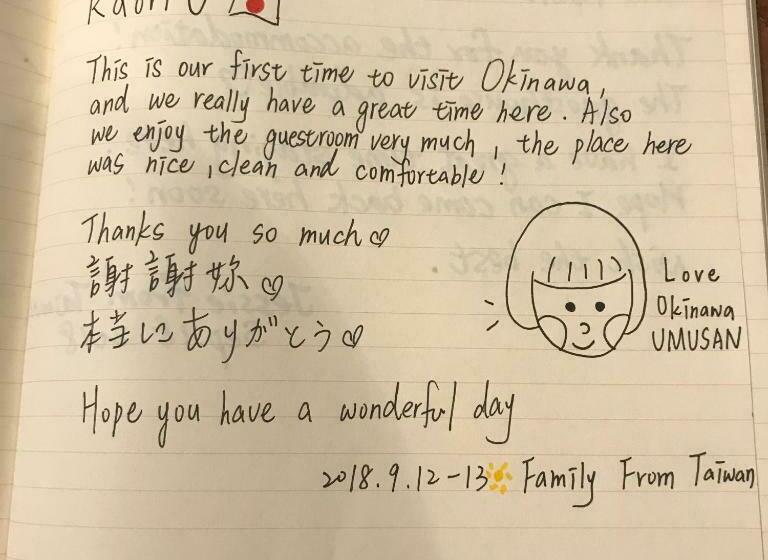 This is our first time to visit Okinawa,
and we really have a great time here. Also
we enjoy the guestroom very much, the place here
was nice, clean and comfortable!
Thanks you so much♡
謝謝妳♡
本当にありがとう♡
Love
Okinawa
UMUSAN
Hope you have a wonderful day
2018.9.12-13 Family From Taiwan